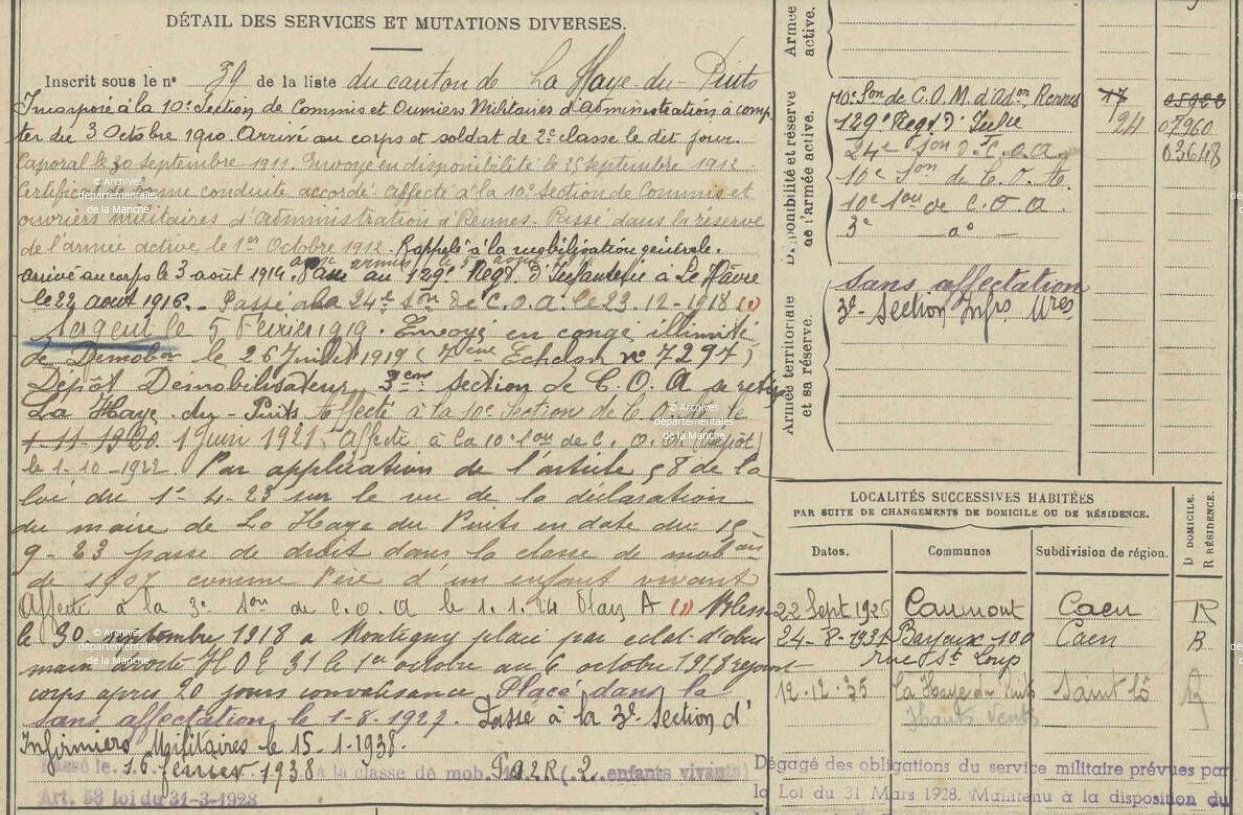 DÉTAIL DES SERVICES ET MUTATIONS DIVERSES.
Inscrit sous le n° 39 de la liste du canton de La Haye-du-Puits
Incorporé à la 10e Section de Commis et Ouvriers Militaires d'administration à comp
ter du 3 Octobre 1910. Arrivé au corps et soldat de 2e classe le dit jour.
Caporal le 30 septembre 1911. Envoyé en disponibilité le 25 septembre 1912
Certificat de bonne conduite accordé. Affecté à la 10e Section de Commis et
ouvriers militaires d'administration à Rennes. Passé dans la réserve
de l'armée active le 1er Octobre 1912. Rappelé à la mobilisation générale.
arrivé au corps le 3 août 1914. Passé au 129e Régt d'Infanterie à Le Hâvre
le 22 août 1916. - Passé à la 24e Son de C.O.A. le 23-12-1918 (1)
Sergent le 5 Février 1919. Envoyé en congé illimité
de Démobon le 26 Juillet 1919 (7ème Echelon no 7297)
Dépôt Démobilisateur 3em Section de C.O.A se retire
La Haye-du-Puits Affecté à la 10e Section de C.O.A. le
1-11-1920. 1 Juin 1921. affecté à la 10e Son de C.O.A. (Dépôt)
le 1-10-1922. Par application de l'article 58 de la
loi du 1-4-23 sur le vu de la déclaration
du maire de La Haye du Puits en date du 15
9-23 passe de droit dans la classe de mobon
de 1907 comme Père d'un enfant vivant
Affecté à la 3e Son de C.O.A le 1.1.24 Plan A (1) Blessé
le 30 septembre 1918 à Montigny plaie par éclat d'obus
main droite H O E 31 le 1er octobre au 6 octobre 1918 rejoint
corps après 20 jours convalescence Placé dans la
sans affectation le 1-8-1927. Passe à la 3e Section d'
Infirmiers Militaires le 15-1-1938.
Passé le 16 février 1938 à la classe de mob. (2 enfants vivants)
Art. 58 loi du 31-3-1928
Armée active.
Disponibilité et réserve de l'armée active.
10e Son de C.O.M. d'Adon Rennes 17
129e Régt d'Infie 24 07960
24e Son d. C.O.A. 03648
10e Son de C.O.A.
10e Son de C.O.A.
3e - do -
Armée territoriale et sa réserve.
Sans affectation
3e Section Infrs Mres
LOCALITÉS SUCCESSIVES HABITÉES
PAR SUITE DE CHANGEMENTS DE DOMICILE OU DE RÉSIDENCE.
Dates. Communes Subdivision de région. D DOMICILE. R RÉSIDENCE.
22 Sept 1926 Caumont Caen R
24-8-1931 Bayeux 100 Caen R
rue St Loup
12-12-35 La Haye du Puits Saint Lô R
Hauts Vents
Dégagé des obligations du service militaire prévues par
la Loi du 31 Mars 1928. Maintenu à la disposition du
© Archives
départementales
de la Manche
© Archives
départementales
de la Manche
© Archives
départementales
de la Manche